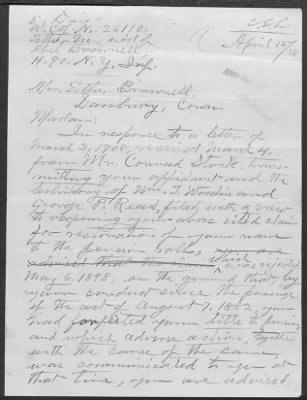 W. Ctf. No. 26110.
Esther
Abel Brownell
H. 90. N. Y. Inf.
April 16/08
Mrs. Esther Brownell,
Danbury, Conn.
Madam:
In response to a letter of
March 3, 1908, received March 4,
from Mr. Conrad trans-
mitting your affidavit and the
testimony of Wm. T. Woodin and
George P. Read, filed with a view
to reopening your above cited claim
for restoration of your name
to the pension rolls, you are
advised that the which was rejected
May 6, 1898, on the ground that by
your conduct since the passage
of the act of August 7, 1882, you
had forfeited your title to pension
and which adverse action, together
with the cause of the same,
was communicated to you at
that time, you are advised